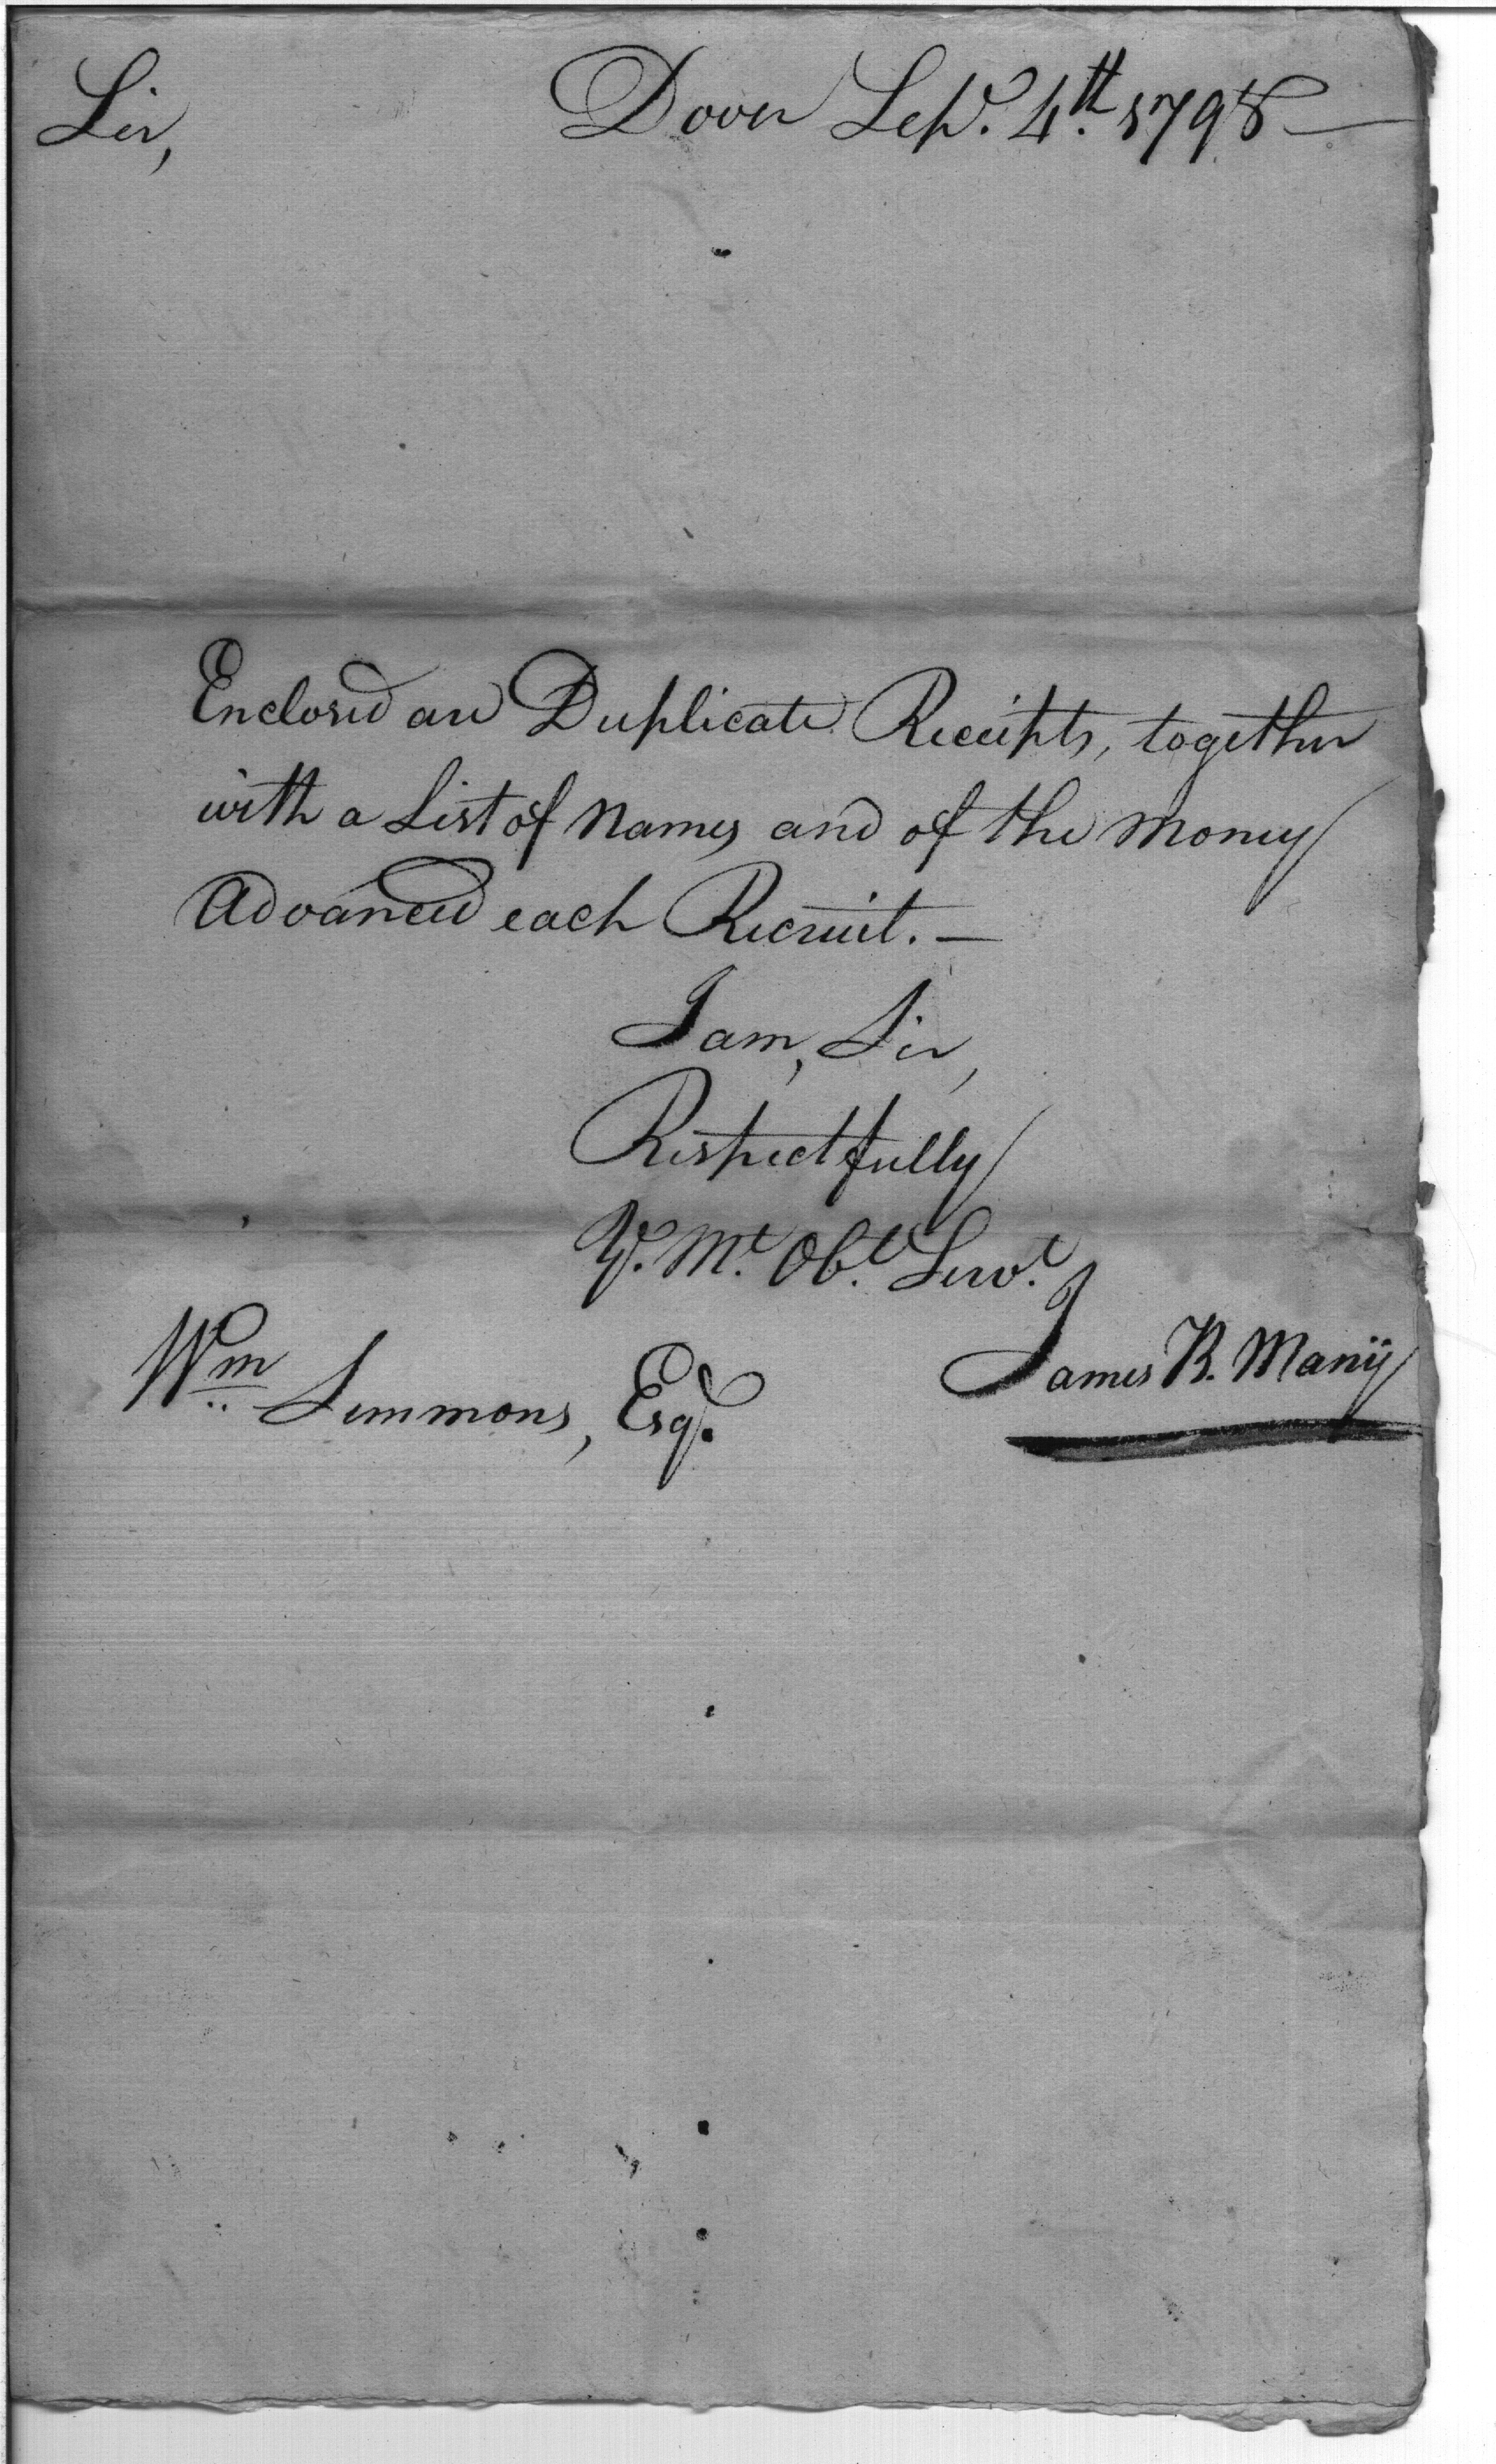 Sir, Dover Sep.r 4.th 1798 —
Enclosed are Duplicate Receipts, together
with a List of Names and of the Money
Advanced each Recruit. —
I am, Sir,
Respectfully
Yr. Mt. Obt. Servt.
James B. Many
Wm Simmons, Esqr.